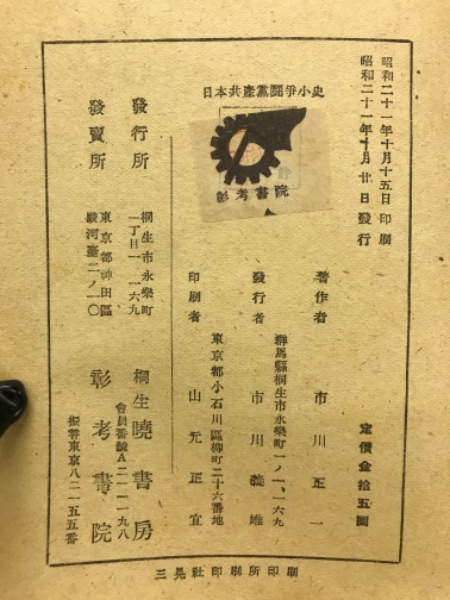 昭和二十一年十月十五日印刷
昭和二十一年十月廿日發行
日本共產黨鬪爭小史
彰考書院
定價金拾五圓
著作者 市川正一
群馬縣桐生市永樂町一ノ一、一六九
發行者 市川義雄
東京都小石川區柳町二十六番地
印刷者 山元正宜
發行所
桐生市永樂町
一丁目一、一六九
桐生曉書房
會員番號A二一一一九八
發賣所
東京都神田區
駿河臺二ノ一〇
彰考書院
振替東京八二一五五番
三晃社印刷所印刷